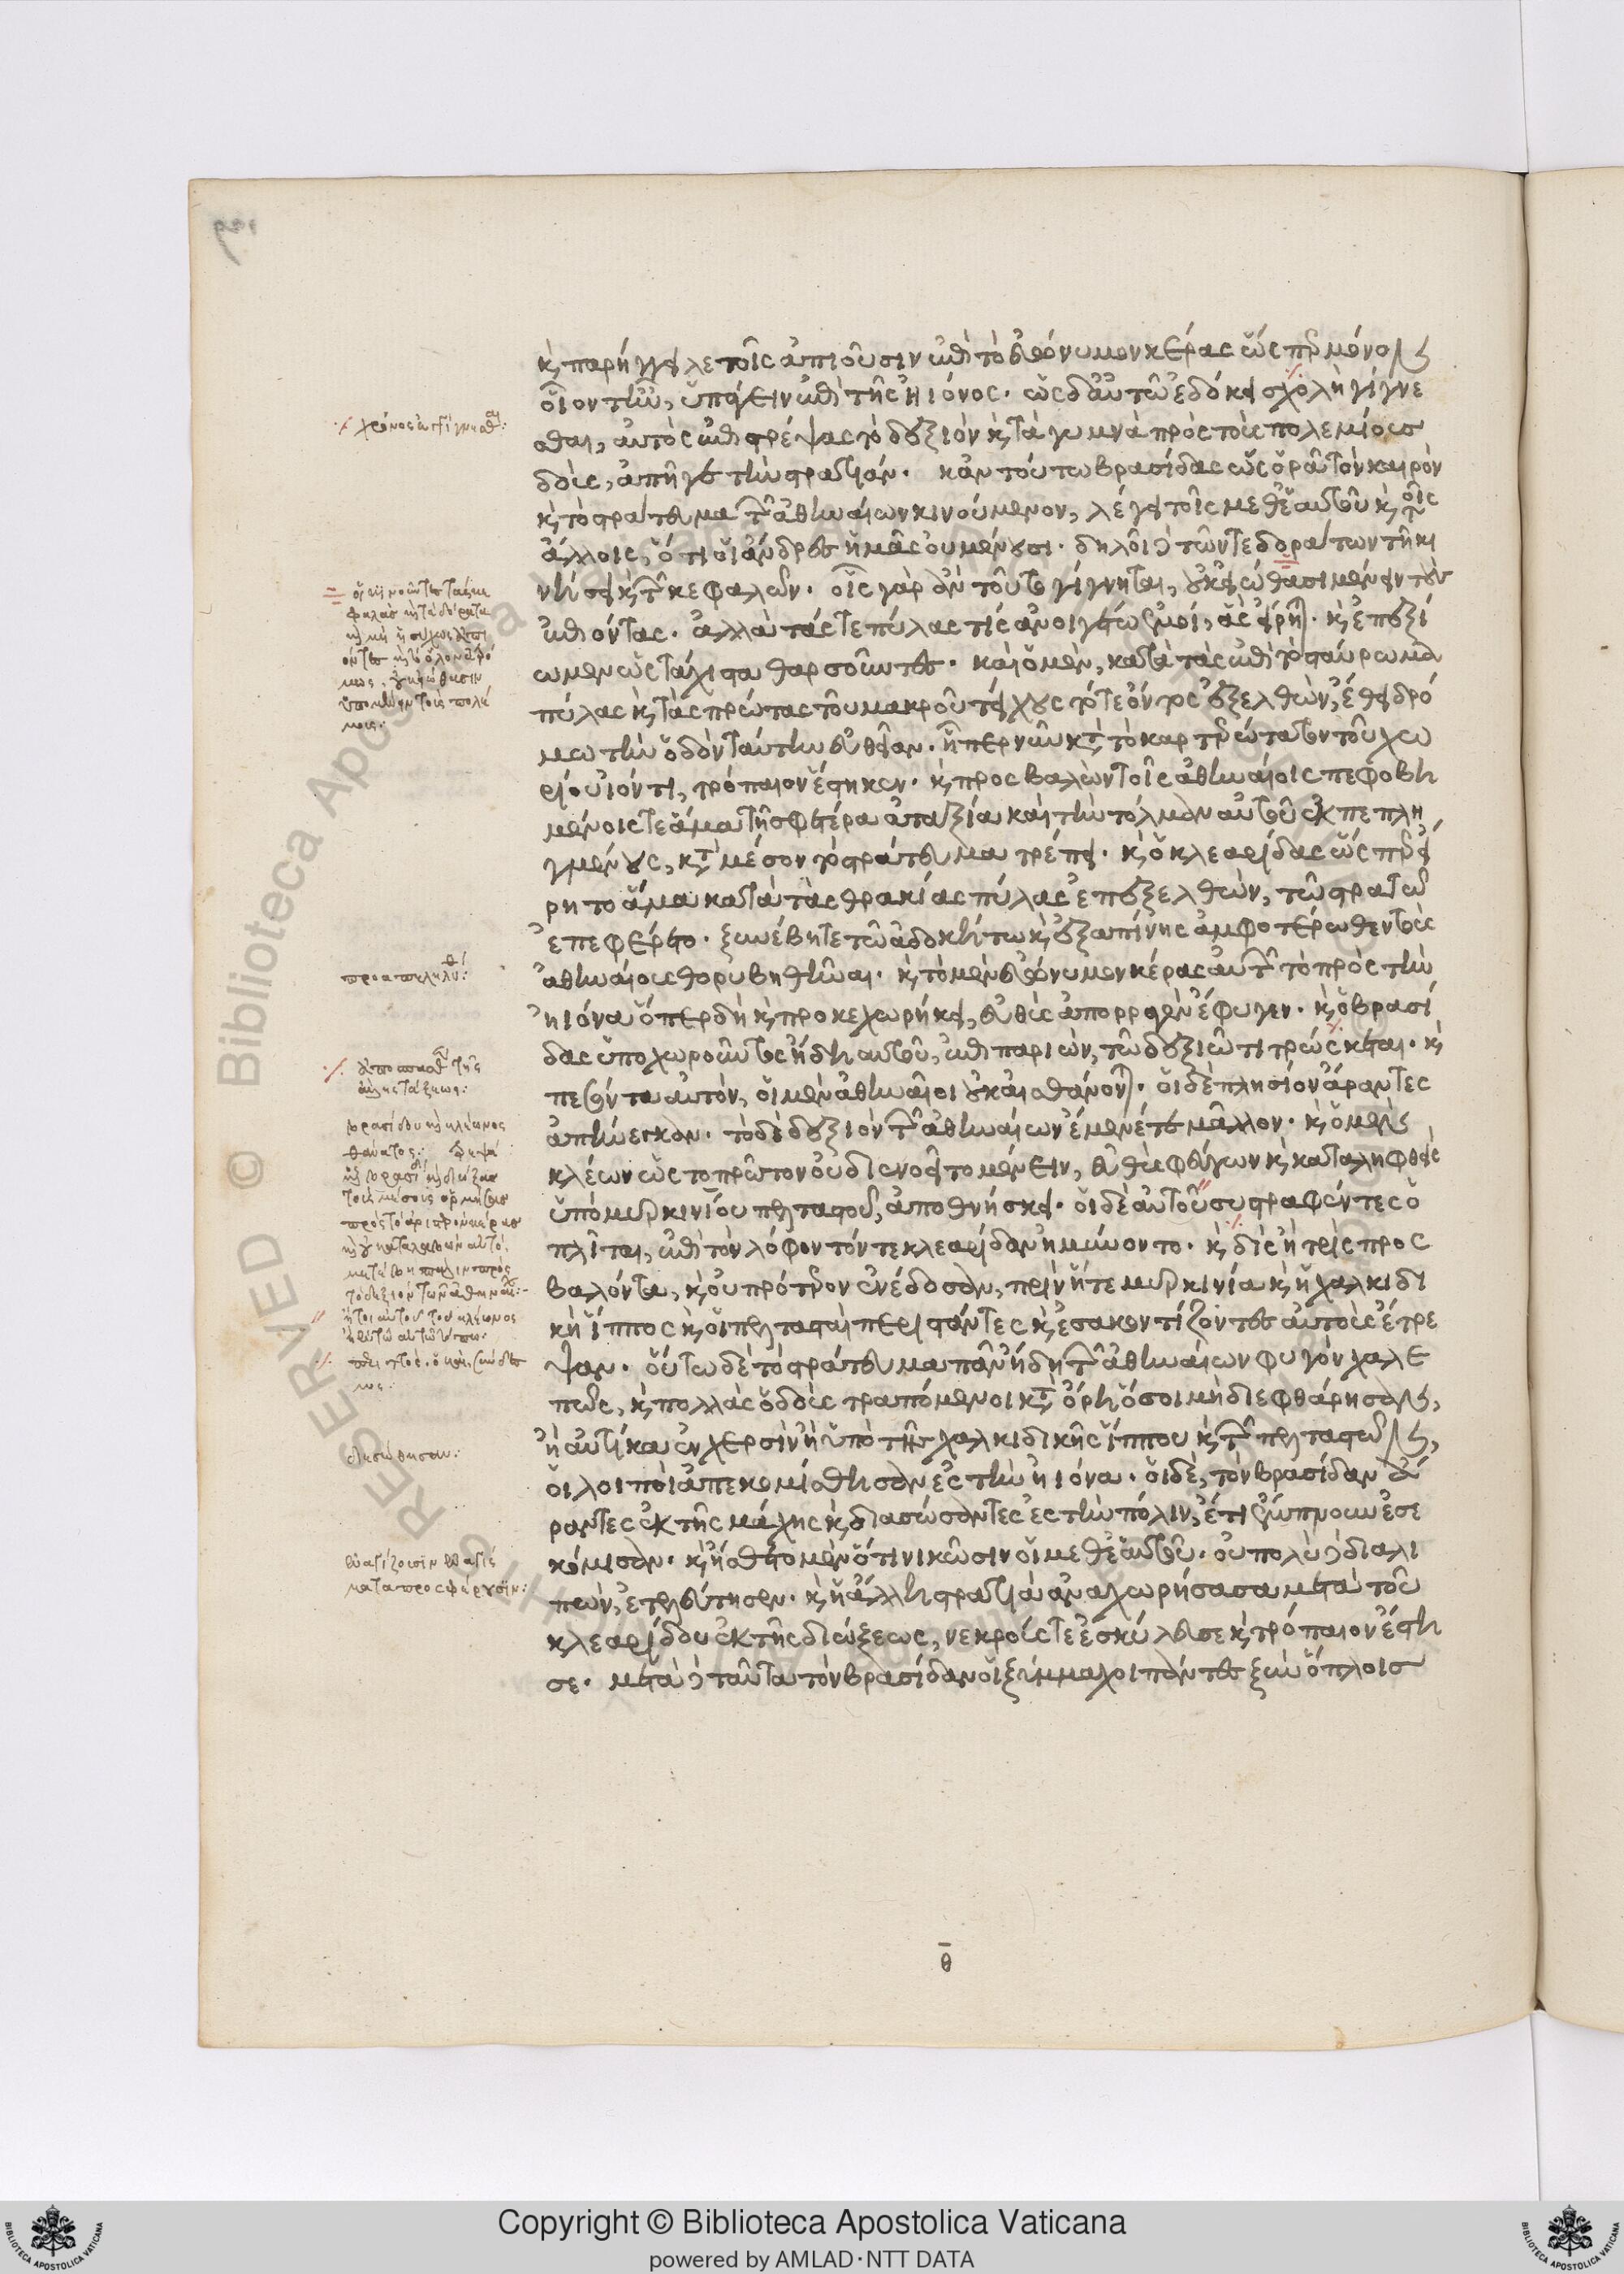 καὶ παρήγγειλε τοῖς ἀπιοῦσιν ἐπὶ τὸ εὐώνυμον κέρας ὥσπερ μόνον
οἷόντ' ἦν, ὑπάγειν ἐπὶ τῆς ἠιόνος. ὡς δ' αὐτῶ ἐδόκει σχολὴ γίγνε
σθαι, αὐτὸς ἐπιστρέψας τὸ δεξιὸν καὶ τὰ γυμνὰ πρὸς τοὺς πολεμίους
δοὺς, ἀπῆγε τὴν στρατιάν. κἀν τούτω βρασίδας ὡς ὁρᾶ τὸν καιρὸν
καὶ τὸ στράτευμα τῶν ἀθηναίων κινούμενον, λέγει τοῖς μεθ' ἑαυτοῦ καὶ τοῖς
ἄλλοις, ὅτι οἱ ἄνδρες ἡμᾶς οὐ μένουσι. δῆλοι δὲ τῶν τε δοράτων τῆ κι
νήσει καὶ τῶν κεφαλῶν. οἷς γὰρ ἂν τοῦτο γίγνηται, οὐκ εἰώθασι μένειν τοὺς
ἐπιόντας. ἀλλὰ τάς τε πύλας τίς ἀνοιγέτω ἐμοὶ, ἃς εἴρηται. καὶ ἐπεξί
ωμεν ὡς τάχιστα θαρσοῦντες. καὶ ὁ μὲν, κατὰ τὰς ἐπὶ τὸ σταύρωμα
πύλας καὶ τὰς πρώτας τοῦ μακροῦ τείχους τότε ὄντος ἐξελθὼν, ἔθει δρό
μω τὴν ὁδὸν ταύτην εὐθεῖαν. ἧπερ νῦν κατὰ τὸ καρτερώτατον τοῦ χω
ρίου ἰόντι, τρόπαιον ἕστηκεν. καὶ προσβαλὼν τοῖς ἀθηναίοις πεφοβη
μένοις τε ἅμα τῆ σφετέρα ἀταξία καὶ τὴν τόλμαν αὐτοῦ ἐκπεπλη
γμένους, κατὰ μέσον τὸ στράτευμα τρέπει. καὶ ὁ κλεαρίδας ὥσπερ εἴ
ρητο ἅμα κατὰ τὰς θρακίας πύλας ἐπεξελθὼν, τῶ στρατῶ
ἐπεφέρετο. ξυνέβη τε τῶ ἀδοκήτω καὶ ἐξαπίνης ἀμφοτέρωθεν τοὺς
ἀθηναίους θορυβηθῆναι. καὶ τὸ μὲν εὐώνυμον κέρας αὐτῶν τὸ πρὸς τὴν
ἠιόνα ὅπερ δὴ καὶ προκεχωρήκει, εὐθὺς ἀπορραγὲν ἔφυγεν. καὶ ὁ βρασί
δας ὑποχωροῦντος ἤδη αὐτοῦ, ἐπιπαριὼν, τῶ δεξιῶ τιτρώσκεται. καὶ
πεσόντα αὐτὸν, οἱ μὲν ἀθηναῖοι οὐκ αἰσθάνονται. οἱ δὲ πλησίον ἄραντες
ἀπήνεγκαν. τὸ δὲ δεξιὸν τῶν ἀθηναίων ἔμενέ τε μᾶλλον. καὶ ὁ μὲν
κλέων ὡς τὸ πρῶτον οὐ διενοεῖτο μένειν, εὐθὺς φεύγων καὶ καταληφθεὶς
ὑπὸ μυρκινίου πελταστοῦ, ἀποθνήσκει. οἱ δὲ αὐτοῦ συστραφέντες ὁ
πλῖται, ἐπὶ τὸν λόφον τόν τε κλεαρίδαν ἠμύνοντο. καὶ δὶς ἢ τρὶς προς
βαλόντα, καὶ οὐ πρότερον ἐνέδοσαν, πρὶν ἥ τε μυρκινία καὶ ἡ χαλκιδι
κὴ ἵππος καὶ οἱ πελτασταὶ περιστάντες καὶ ἐσακοντίζοντες αὐτοὺς ἔτρε
ψαν. οὕτω δὲ τὸ στράτευμα πᾶν ἤδη τῶν ἀθηναίων φυγὸν χαλε
πῶς, καὶ πολλὰς ὁδοὺς τραπόμενοι κατὰ ὄρη ὅσοι μὴ διεφθάρησαν,
ἢ αὐτίκα ἐν χερσὶν ἢ ὑπὸ τῆς χαλκιδικῆς ἵππου καὶ τῶν πελταστῶν,
οἱ λοιποὶ ἀπεκομίσθησαν ἐς τὴν ἠιόνα. οἱ δὲ, τὸν βρασίδαν ἄ
ραντες ἐκ τῆς μάχης καὶ διασώσαντες ἐς τὴν πόλιν, ἔτι ἔμπνουν ἐσε
κόμισαν. καὶ ᾔσθετο μὲν ὅτι νικῶσιν οἱ μεθ' ἑαυτοῦ. οὐ πολὺ δὲ διαλι
πὼν, ἐτελεύτησεν. καὶ ἡ ἄλλη στρατιὰ ἀναχωρήσασα μετὰ τοῦ
κλεαρίδου ἐκ τῆς διώξεως, νεκρούς τε ἐσκύλευσε καὶ τρόπαιον ἔστη
σε. μετὰ δὲ ταῦτα τὸν βρασίδαν οἱ ξύμμαχοι πάντες ξὺν ὅπλοις
θ
οἱ κινοῦντες τὰς κε
φαλὰς καὶ τὰ δόρατα
βρασίδου καὶ κλέωνος
θάνατος:
πρὸς τὸ ἀριστερὸν κέρας
τὸ δεξιὸν τῶν ἀθηναίων:
ἤτοι αὐτοῦ τοῦ κλέωνος
διεσώθησαν: